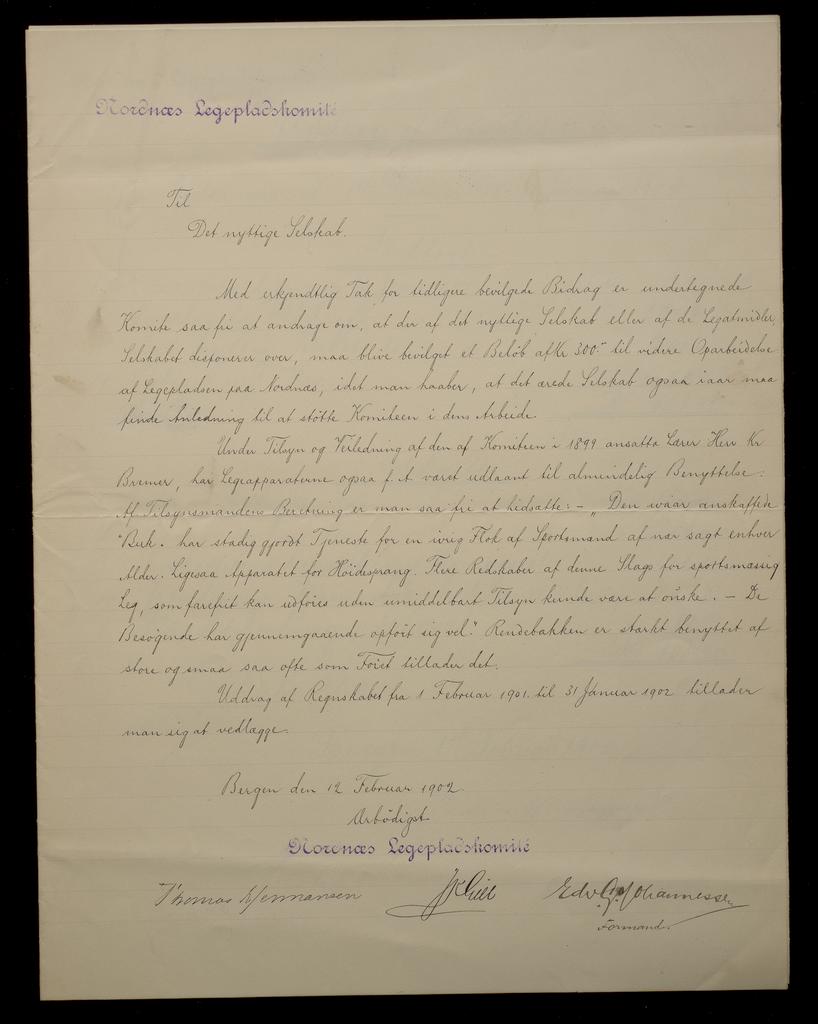 Nordnæs Legepladskomité
Til
Det nyttige Selskab.
Med erkjendtlig Tak for tidligere bevilgede Bidrag er undertegnede
Komite saa fri at andrage om, at der af det nyttige Selskab eller af de Legatmidler,
Selskabet disponerer over, maa blive bevilget et Beløb af Kr 300.- til videre Oparbeidelse
af Legepladsen paa Nordnæs, idet man haaber, at det ærede Selskab ogsaa iaar maa
finde Anledning til at støtte Komiteen i dens Arbeide.
Under Tilsyn og Veiledning af den af Komiteen i 1899 ansatte Lærer Herr Kr
Bremer, har Legeapparaterne ogsaa f. A. været udlaant til almindelig Benyttelse.
Af Tilsynsmandens Beretning er man saa fri at hidsætte: - „Den ivaar anskaffede
"Buk" har stadig gjordt Tjeneste for en ivrig Flok af Sportsmænd af nær sagt enhver
Alder. Ligesaa Apparatet for Høidesprang. Flere Redskaber af denne Slags for sportsmæssig
Leg, som farefrit kan udføres uden umiddelbart Tilsyn kunde være at ønske. - De
Besøgende har gjennemgaaende opført sig vel." Rendebakken er stærkt benyttet af
store og smaa saa ofte som Føret tillader det.
Uddrag af Regnskabet fra 1 Februar 1901. til 31 Januar 1902 tillader
man sig at vedlægge.
Bergen den 12 Februar 1902.
Ærbødigst
Nordnæs Legepladskomité
Thomas Hermansen Edv. G. Johannessen
Formand.